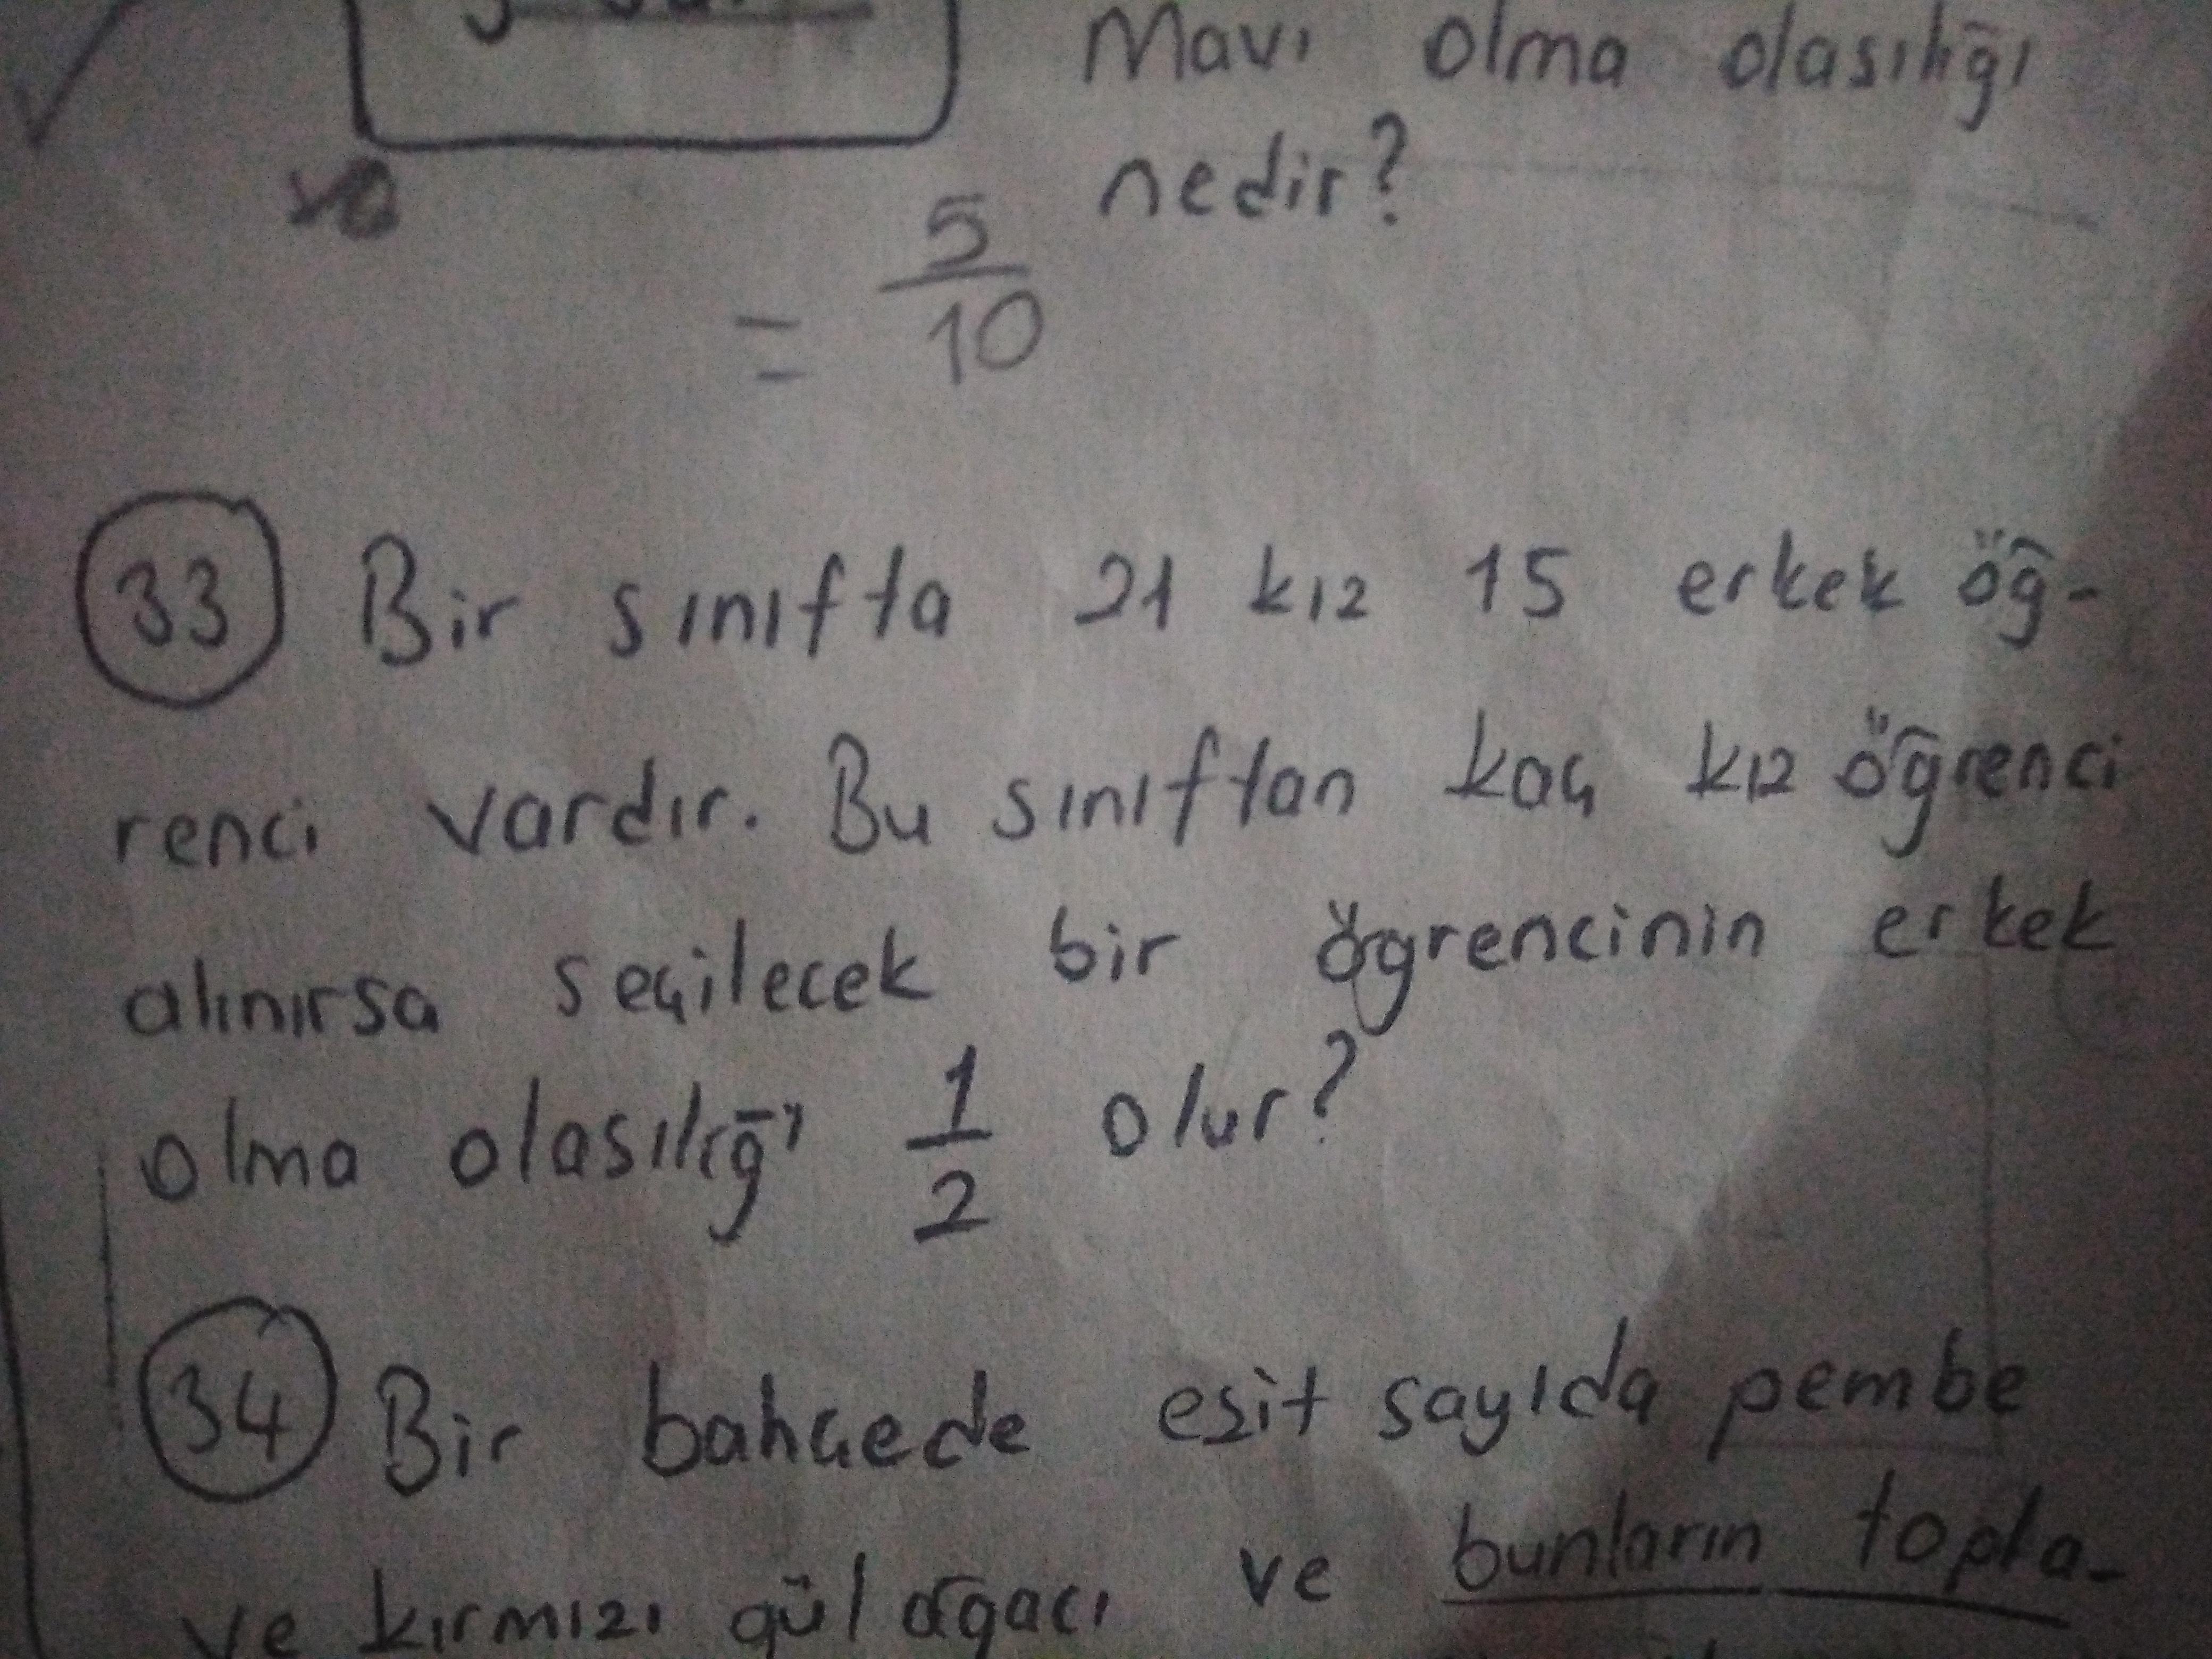 Mavi olma olasılığı
nedir?
= 5/10
33 Bir sınıfta 21 kız 15 erkek öğ-
renci vardır. Bu sınıftan kaç kız öğrenci
alınırsa seçilecek bir ögrencinin erkek
olma olasılığı 1/2 olur?
34 Bir bahçede eşit sayıda pembe
ve kırmızı gül ağacı ve bunların topla-